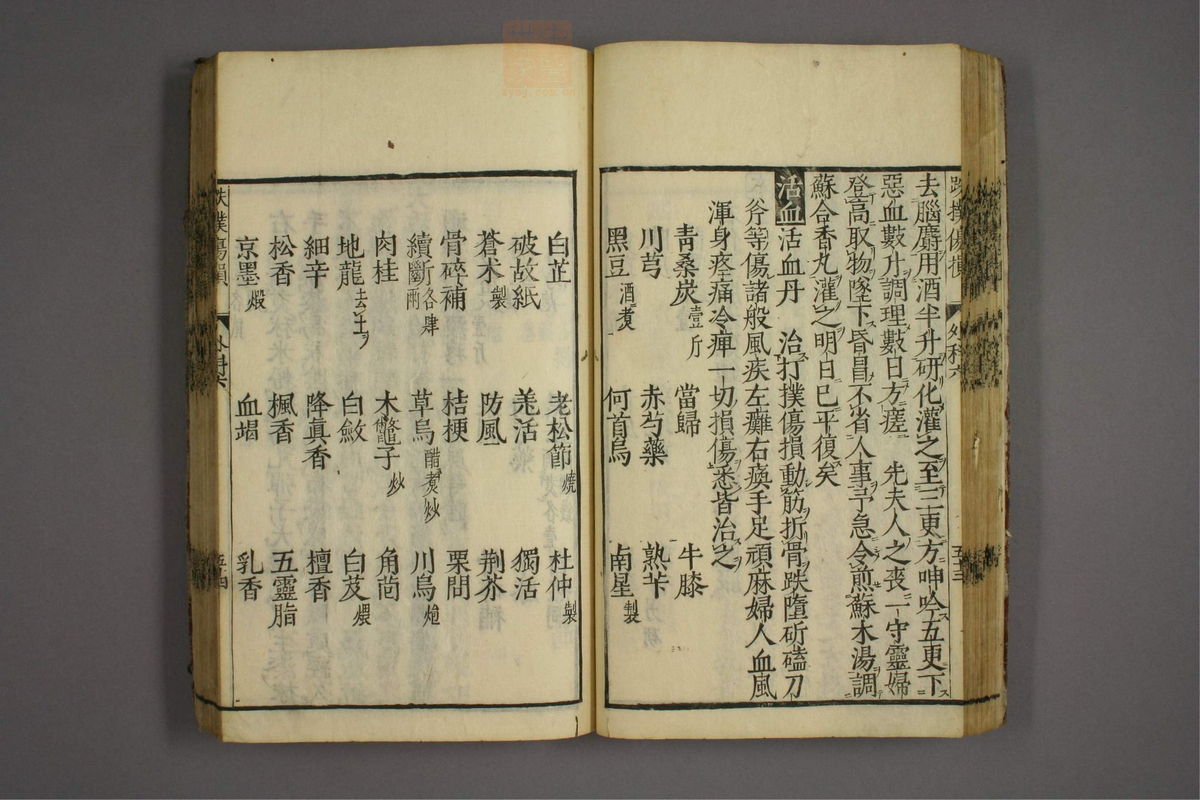 跌撲傷損
外科六
五十三
去腦麝用酒半升研化灌之至三更方呻吟五更下
惡血數升調理數日方瘥 先夫人之喪一守靈婦
登高取物墜下昏冒不省人事予急令煎蘇木湯調
蘇合香丸灌之明日已平復矣
活血 活血丹 治打撲傷損動筋折骨跌墮斫磕刀
斧等傷諸般風疾左癱右瘓手足頑麻婦人血風
渾身疼痛冷痺一切損傷悉皆治之
青桑炭壹斤 當歸 牛膝
川芎 赤芍藥 熟苄
黑豆酒煮 何首烏 南星製
白芷 老松節燒 杜仲製
破故紙 羌活 獨活
蒼术製 防風 荆芥
骨碎補 桔梗 栗間
續斷各肆兩 草烏醋煮炒 川烏炮
肉桂 木鱉子炒 角茴
地龍去土 白斂 白芨煨
細辛 降真香 檀香
松香 楓香 五靈脂
京墨煅 血竭 乳香
跌撲傷損
外科六
五十四